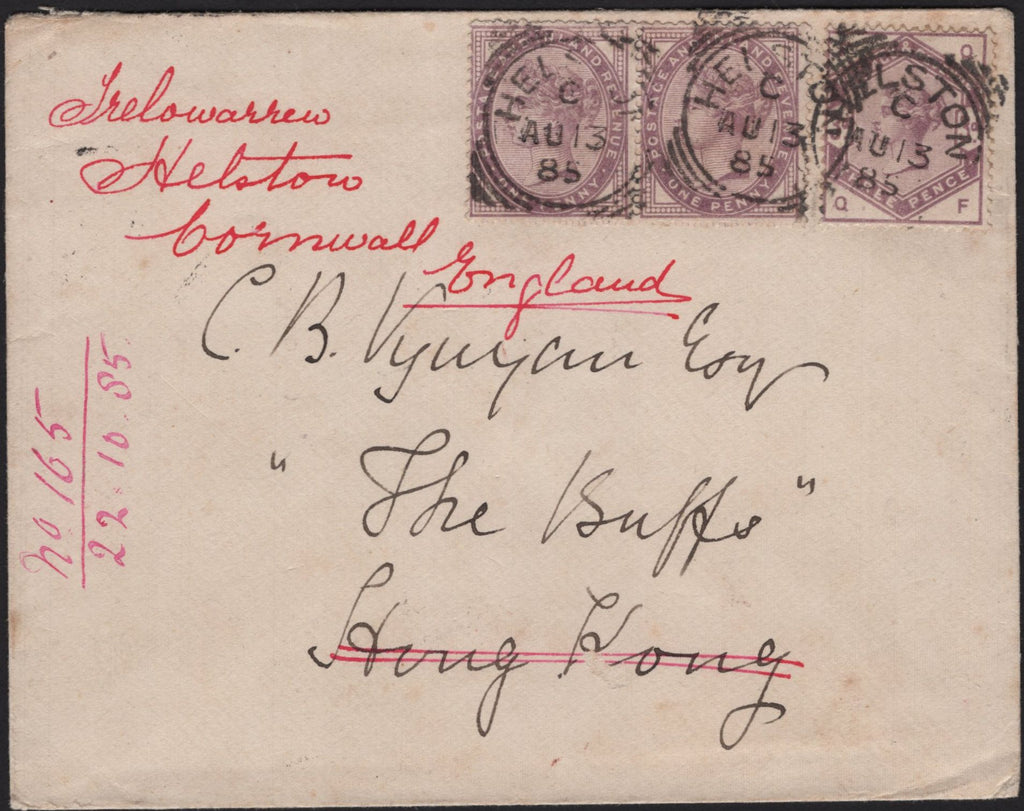 HELSTON
C
AU 13
85
HELSTON
C
AU 13
85
HELSTON
C
AU 13
85
POSTAGE AND REVENUE
ONE PENNY
POSTAGE AND REVENUE
ONE PENNY
THREE PENCE
Q F
Trelowarren
Helston
Cornwall
England
C. B. Vyvyan Esq
"The Buffs"
Hong Kong
No 165
22 10 85